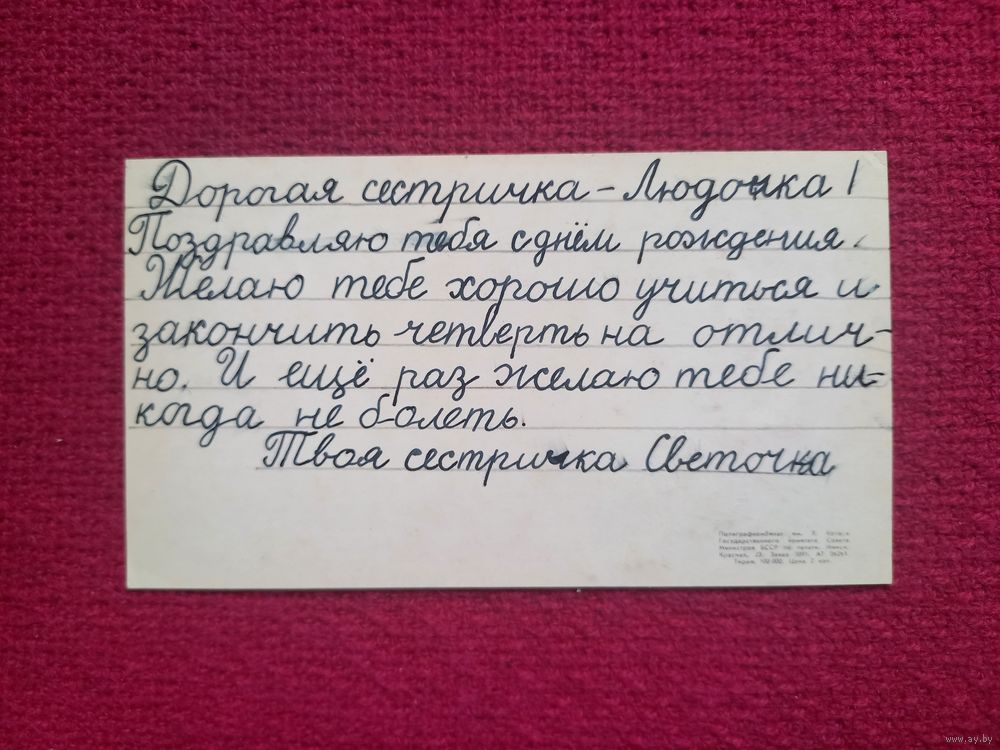 Дорогая сестричка - Людочка!
Поздравляю тебя с днём рождения.
Желаю тебе хорошо учиться и
закончить четверть на отлич-
но. И ещё раз желаю тебе ни-
когда не болеть.
Твоя сестричка Светочка
Полиграфкомбинат им. Я. Коласа
Государственного комитета Совета
Министров БССР по печати. Минск,
Красная, 23. Заказ АТ
Тираж 100 000. Цена 2 коп.
www.ay.by